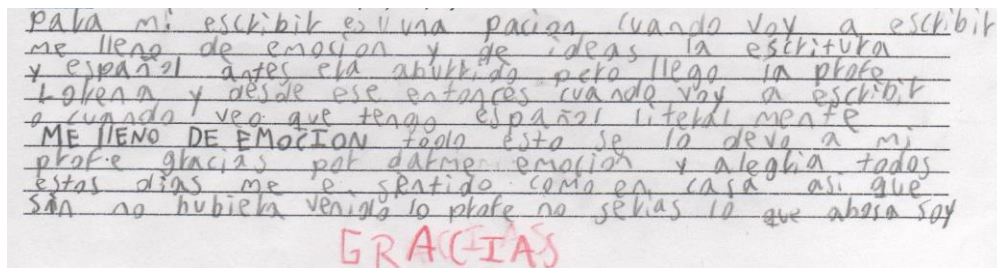 para mi escribir es una pacion cuando voy a escribir
me lleno de emocion y de ideas la escritura
y español antes era aburrido pero llego la profe
Lorena y desde ese entonces cuando voy a escribir
o cuando veo que tengo español literal mente
ME llENO DE EMOCION todo esto se lo devo a mi
profe gracias por darme emocion y alegria todos
estos dias me e sentido como en casa asi que
sin no hubiera venido lo profe no serias lo que ahora soy
GRACIAS